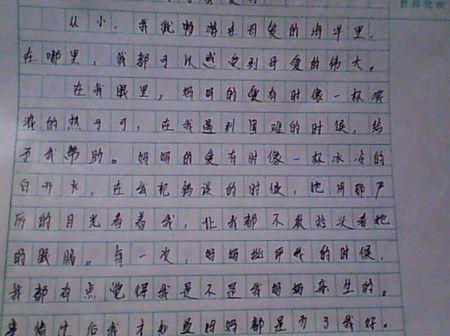 从小，我就畅游在母爱的海洋里，
在哪里，我都可以感受到母爱的伟大。
在我眼里，妈妈的爱有时像一杯浓
浓的热可可，在我遇到困难的时候，给
予我帮助。妈妈的爱有时像一杯冰冷的
白开水，在我犯错误的时候，她用那严
厉的目光看着我，让我都不敢抬头看她
的眼睛。每一次，妈妈批评我的时候，
我都有点觉得我是不是我妈妈亲生的。
后我才知道妈妈都是为了我好。